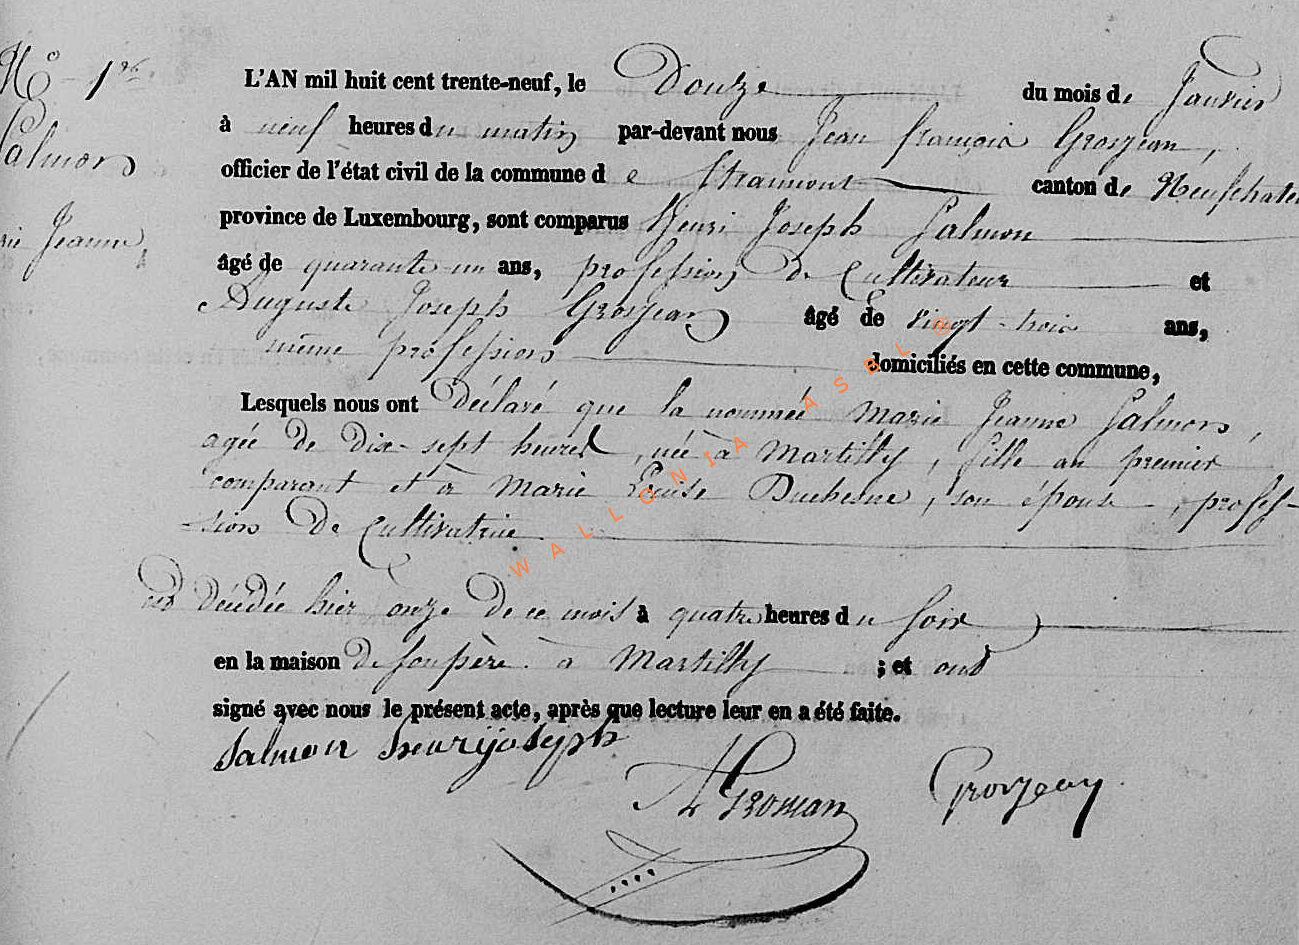 No 1er
Salmon
Jeanne
L'AN mil huit cent trente-neuf, le Douze du mois de Janvier
à neuf heures du matin par-devant nous Jean françois Grosjean,
officier de l'état civil de la commune de Straimont canton de Neufchateau
province de Luxembourg, sont comparus Henri Joseph Salmon
âgé de quarante un ans, profession de Cultivateur et
Auguste Joseph Grosjean âgé de vingt-trois ans,
même profession domiciliés en cette commune,
Lesquels nous ont Déclaré que la nommée Marie Jeanne Salmon,
agée de Dix-sept heures, née à Martilly, fille au premier
comparant et à Marie Louise Duchesne, son épouse, profes-
sion de Cultivatrice
est Décédée hier onze de ce mois à quatre heures du soir
en la maison de son père à Martilly ; et ont
signé avec nous le présent acte, après que lecture leur en a été faite.
Salmon henrijoseph
Grosjean
WALLONIA ASBL ©